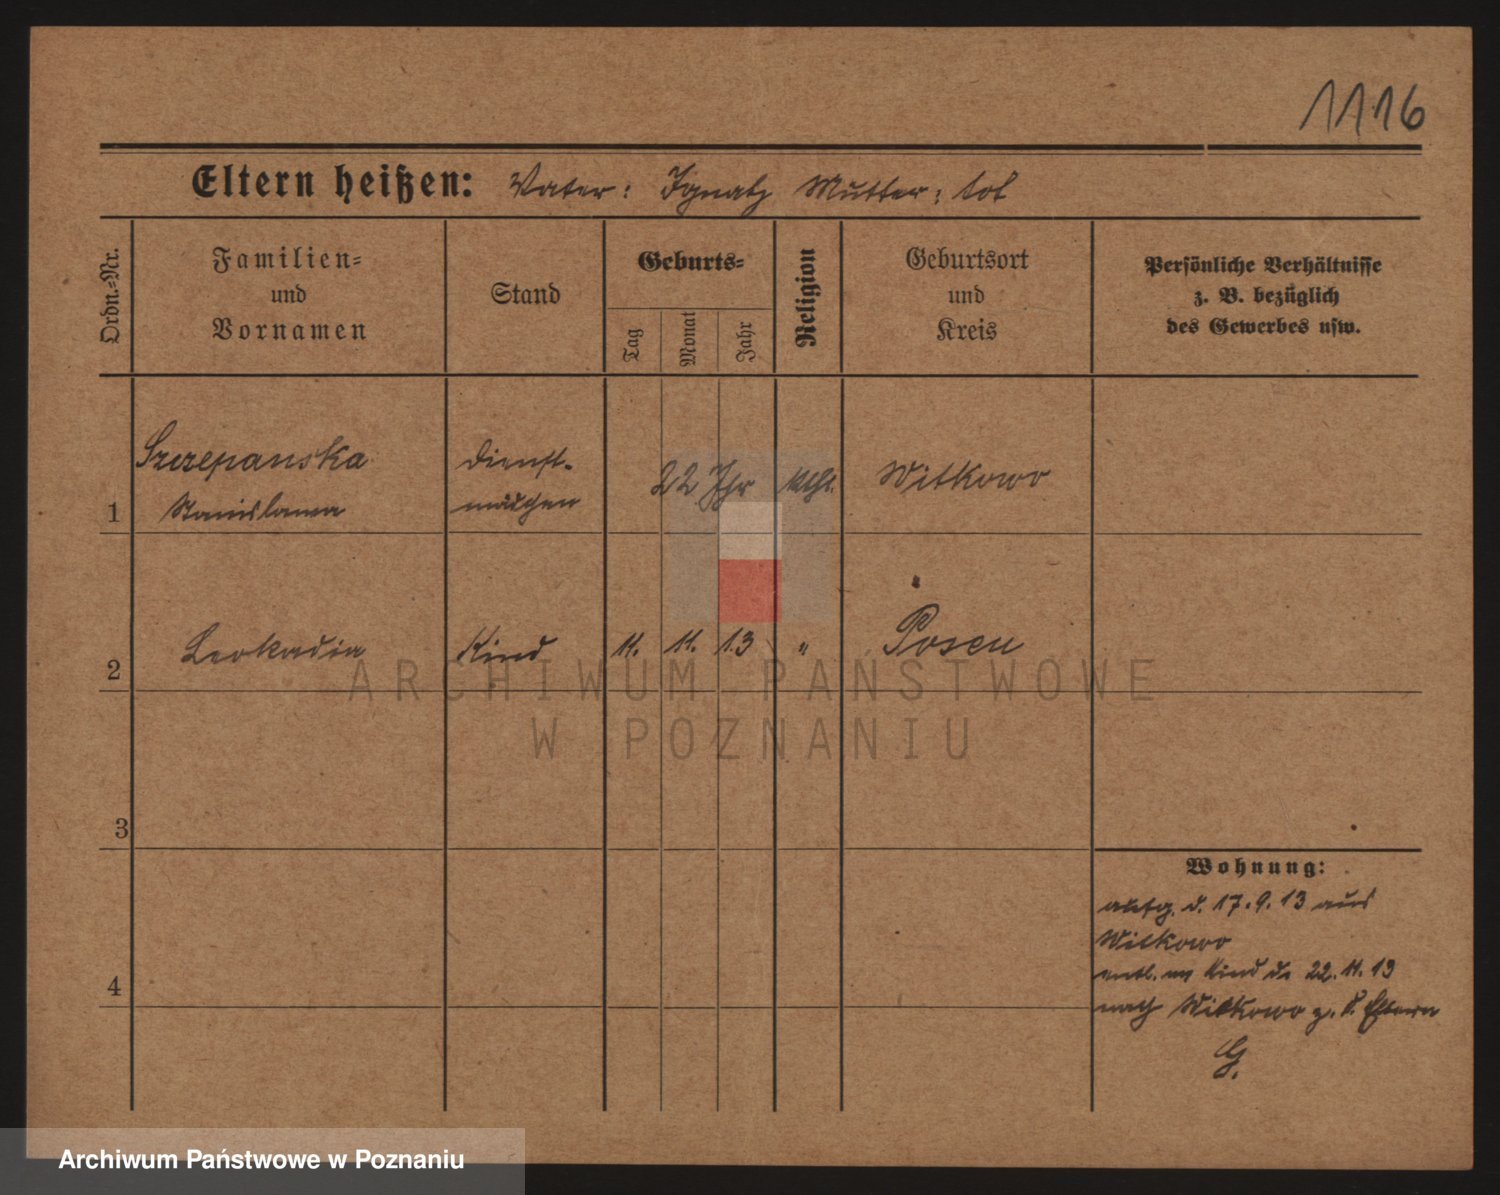 1116
Eltern heißen: Vater: Ignatz Mutter: tot
Ordn.-Nr.
Familien-
und
Vornamen
Stand
Geburts-
Tag
Monat
Jahr
Religion
Geburtsort
und
Kreis
Persönliche Verhältnisse
z. B. bezüglich
des Gewerbes usw.
1
Szczepanska
Stanislawa
Dienst-
mädchen
22 Jhr
kth.
Witkowo
2
Leokadia
Kind
11.
11.
13
"
Posen
3
4
Wohnung:
aufg. d. 17.9.13 aus
Witkowo
entl. m Kind d. 22.11.13
nach Witkowo z. d. Eltern
G.
ARCHIWUM PAŃSTWOWE
W POZNANIU
Archiwum Państwowe w Poznaniu